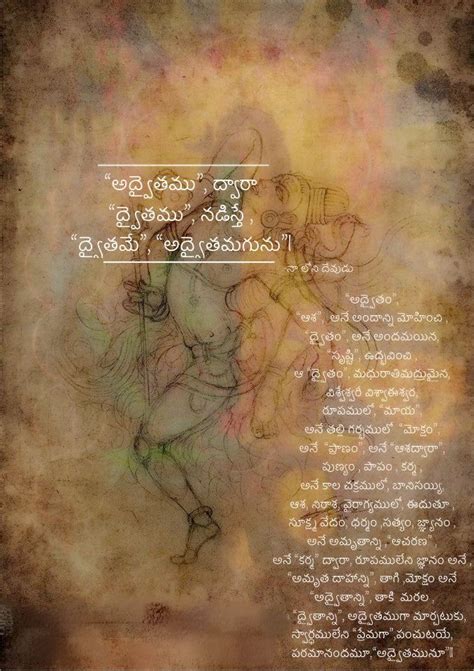 “అద్వైతము”, ద్వారా
“ద్వైతము”, నడిస్తే ,
“ద్వైతమే”, “అద్వైతమగును”|
నా లోని దేవుడు
“అద్వైతం”,
“ఆశ”, అనే అందాన్ని మోహించి ,
“ద్వైతం”, అనే అందమయిన,
“సృష్టి” ఉద్భవించి ,
ఆ “ద్వైతం”, మధురాతిమధ్రుమైన,
విశ్వేశ్వరీ విశ్వాఈశ్వర,
రూపములో, “మాయ”,
అనే తల్లి గర్భములో “మోక్షం”,
అనే “ప్రాణం”, అనే “ఆశద్వారా”,
పుణ్యం , పాపం , కర్మ ,
అనే కాల చక్రములో, బానిసయ్యి,
ఆశ, నిరాశ, వైరాగ్యములో, ఈదుతూ ,
సూక్ష్మ వేదం, ధర్మం ,సత్యం, జ్ఞ్యానం ,
అనే అమృతాన్ని ,“ఆచరణ”
అనే “కర్మ” ద్వారా, రూపములేని జ్ఞానం అనే ,
“అమృత దాహాన్ని”, తాగి ,మోక్షం అనే
“అద్వైతాన్ని”, తాకి మరల ,
“ద్వైతాన్ని”, అద్వైతముగా మార్చుటకు,
స్వార్ధములేని “ప్రేమగా”,పంచుటయే,
పరమానందమూ,“అద్వైతమునూ”||